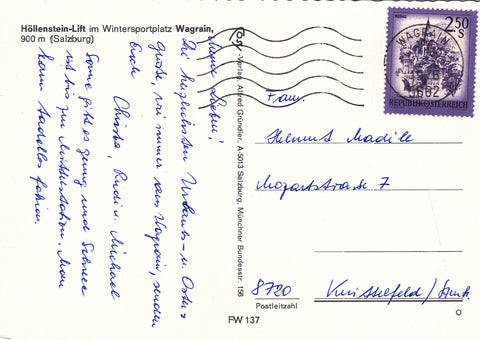 Höllenstein-Lift im Wintersportplatz Wagrain,
900 m (Salzburg)
Meine Lieben!
Die herzlichsten Urlaubs- u. Oster
grüße, wie immer aus Wagrain, senden
Euch
Christa, Rudi u. Michael
Sonne gibt es genug und Schnee
ist bis zur Mittelstation. Man
kann tadellos fahren.
Verlag Alfred Gründler, A-5013 Salzburg, Münchner Bundesstr. 156
WAGRAIN
5602
2.50
S
REPUBLIK ÖSTERREICH
Fam.
Helmut
Mozartstrasse 7
8720
Knittelfeld / Stmk.
Postleitzahl
FW 137